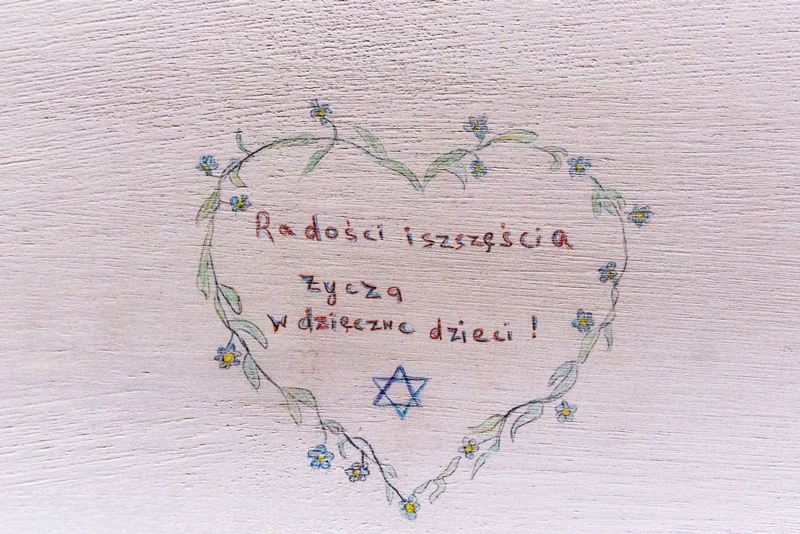 Radości i szszęścia
życzą
wdzięczne dzieci !